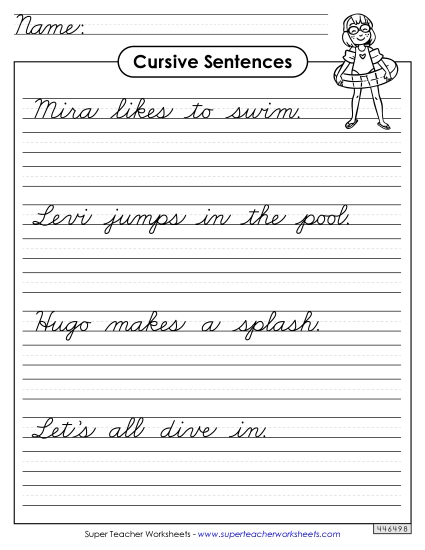 Name:
Cursive Sentences
Mira likes to swim.
Levi jumps in the pool.
Hugo makes a splash.
Let's all dive in.
446498
Super Teacher Worksheets - www.superteacherworksheets.com